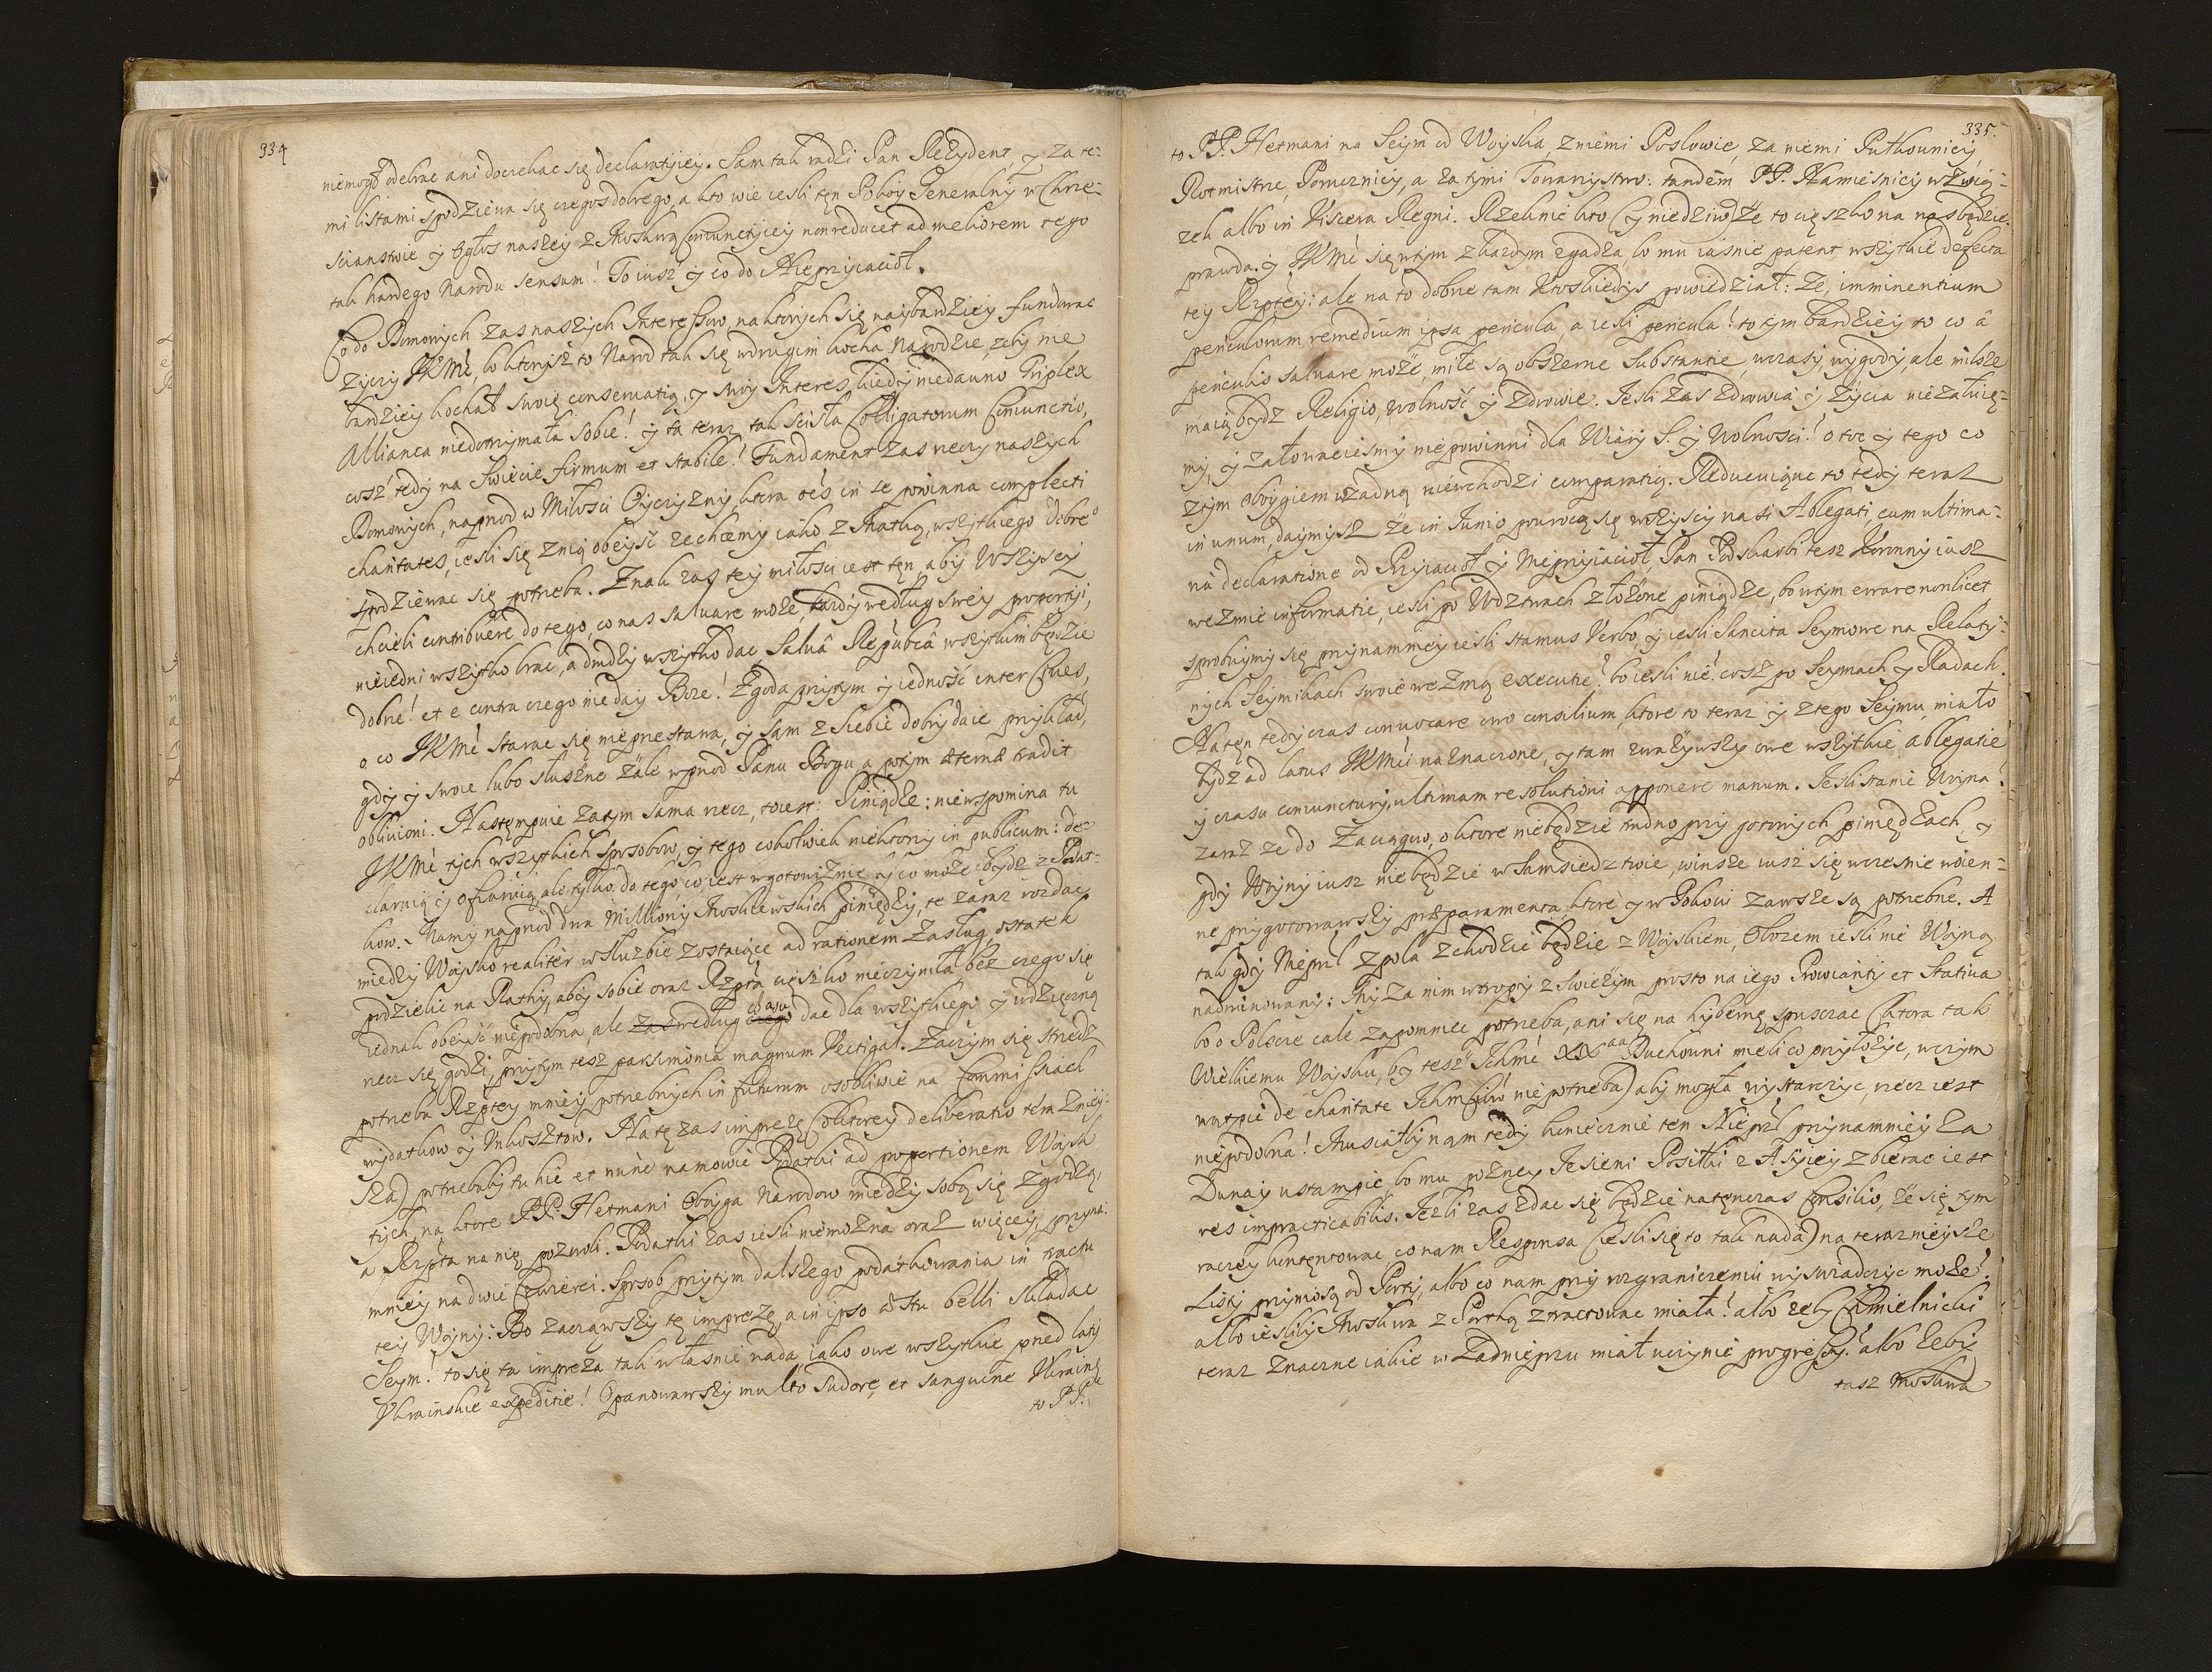 334
niemogł odebrac ani doczekac się declaratijey. Sam tak radzi Pan Rezydent, y za te-
mi listami spodziewa się czegos dobrego, a kto wie iesli ten Pokoy Generalny w Chrze-
scianstwie y Ogłos naszey z Moskwą Coniunctijey non reducet ad meliorem tego
tak hardego Narodu sensum! To iusz y co do Nieprzyiaciół.
Co do Domowych zas naszych Interessow, na ktorych się naybardziey fundowac
życzy JKMć, bo ktorysz to Narod tak się w drugim kocha Narodzie, zeby nie
bardziey kochał swoię conservatią, y swoy Interes, kiedy niedawno Triplex
Allianca niedotrzymała sobie! y ta teraz tak scisła Colligatorum Coniunctio,
cosz tedy na Swiecie firmum et stabile! Fundament zas rzeczy naszych
Domowych, naprzod w Miłosci Oyczyzny, ktora oēs in se powinna complecti
charitates, iesli się z nią obeyść zechcemy iako z Matką, wszytkiego dobreo
spodziewac się potrzeba. Znak zas tey miłosci iest ten, aby Wszyscy
chcieli contribuere do tego, co nas salvare może, kazdy według swey proportij,
nie iedni wszytko brac, a drudzy wszytko dac Salvâ Republcâ wszytkim będzie
dobrze! et e contra czego nie day Boze! Zgoda przytym y iedność inter Cives,
o co JKMć starac się nieprzestanie, y sam z siebie dobry daie przykład,
gdy y swoie lubo słuszne żale wprzod Panu Bogu a potym æternæ tradit
oblivioni. Następuie zatym sama rzecz, to iest: Piniądze: niewspomina tu
JKMć tych wszytkich sposobow, y tego cokolwiek niektorzy in publicum: de-
claruią y ofiaruią, ale tylko do tego, co iest w gotowiznie, y co może bydz z Podat-
kow. Mamy naprzod dwa Milliony Moskiewskich piniędzy, te zaraz rozdac
miedzy Woysko realiter w służbie zostaiące ad rationem Zasług, ostatek
podzielic na Rathy, aby sobie oraz Rzptā cięszko nie czyniła bez czego się
iednak obeyść niepodobna, ale zas według czego czasu dac dla wszytkiego y wdzięczną
rzecz się godzi, przytym tesz parsimonia magnum Vectigal. Zaczym się strzedz
potrzeba Rzptey mniey potrzebnych in futurum osobliwie na Commissiach
wydatkow y Vnkosztow. Na tę zas imprezę (o ktorey deliberatio téra znieỹ-
sza) potrzebaby tu hic et nunc namowic Podatki ad proportionem Woysk
tych, na ktore PP. Hetmani Oboyga Narodow miedzy sobą się zgodzą,
a Rzpta na nię pozwoli. Podatki zas iesli niemozna oraz więcey, przyna-
mniey na dwie Czwierci. Sposob przytym dalszego podatkowania in tractu
tey Woyny: Bo zacząwszy tę imprezę, a in ipso æstu belli składac
Seym! to się ta impreza tak własnie nada iako owe wszytkie przed laty
Vkrainskie expeditie! Opanowawszy multo sudore et sanguine Vkrainę
to PP.
335.
to PP. Hetmani na Seym od Woyska, z niemi Posłowie, za niemi Pułkownicy,
Rotmistrze, Porucznicy, a za tymi Towarzystwo: tandem PP. Namiesnicy w Zwią-
zek albo in Viscera Regni. Rzeknie kto (y niedziw) że to cięszko na nas będzie:
prawda, y JKMć się w tym z kazdym zgadza, bo mu iasnie patent wszytkie defecta
tey Rzptey: ale na to dobrze tam Ktoskiedys powiedział: Ze, imminentium
periculorum remedium ipsa pericula, a iesli pericula! to tym bardziey to co â
periculis salvare może, miłe są obszerne Substantie, wczasy, wygody, ale milsze
maią bydz Religio, wolność y zdrowie. Iesli zas zdrowia y życia nie załuię-
my, y załowacieśmy niepowinni dla Wiary S. y Wolnosci! otoc y tego co
z tym oboygiem w zadną niewchodzi comparatią. Reducuiąc to tedy teraz
in unum, daymysz że in Junio powrocą się wszyscy nasi Ablegati, cum ultima-
nâ declaratione od Przyiaciół y Nieprzyiaciół, Pan Podskarbi tesz Koronny iusz
wezmie informatie, iesli po Wdztwach złożone piniądze, bo w tym errare non licet
sprobuymy się przynamniey iesli stamus Verbo, y iesli Sancita Seymowe na Relaty-
nych Seymikach swoie wezmą executie? bo iesli nie! cosz po Seymach y Radach.
Na ten tedy czas convocare owo consilium, ktore to teraz y z tego Seymu, miało
bydz ad latus JKMći naznaczone, y tam zwazywszy owe wszytkie ablegatie
y czasu coniunctury, ultimam resolutioni apponere manum. Iesli stanie Woyna!
zaraz ze do Zaciągow, o ktore niebędzie trudno przy gotowych piniędzach, y
gdy Woyny iusz niebędzie w Samsiedztwie, winsze iusz się wczesnie woien-
ne przygotowawszy præparamenta, ktore y w Pokoiu zawsze są potrzebne. A
tak gdy Nieprzl z pola zchodzic będzie z Woyskiem, Obozem iesli nie Woyną
nadruinowany: My za nim w tropy z swiezym prosto na iego Prowianty et Stativa
bo o Polscze cale zapomniec potrzeba, ani się na hybernę spuszczac (ktora tak
Wielkiemu Woysku, by tesz Ichmć XX Duchowni mieli co przyłożyc, w czym
wątpic de charitate Ichmściów nie potrzeba) aby mogła wystarczyc, rzecz iest
niepodobna! Musiałby nam tedy koniecznie ten Nieprzl przynamniey za
Dunay ustąpic, bo mu pozney Iesieni Posiłki z Azyey zbierac iest
res impracticabilis. Iezli zas zdac się będzie natenczas Consilio, że się tym
raczey kontentowac co nam Responsa (iesli się to tak nada) na teraznieysze
Listy przyniosą od Porty, albo co nam przy rozgraniczeniu wyswiadczyc może!
albo iesliby Moskwa z Portą ztractowac miała! albo zeby Chmielnicki
teraz znaczne iakie w Zadnieprzu miał uczynic progressy! albo żeby
tasz Moskwa